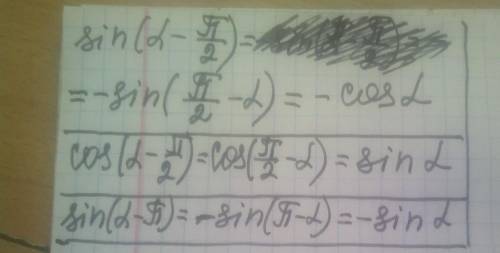 sin(α - π/2) =
= -sin(π/2 - α) = - cosα
cos(α - π/2) = cos(π/2 - α) = sin α
sin(α - π) = -sin(π - α) = -sin α